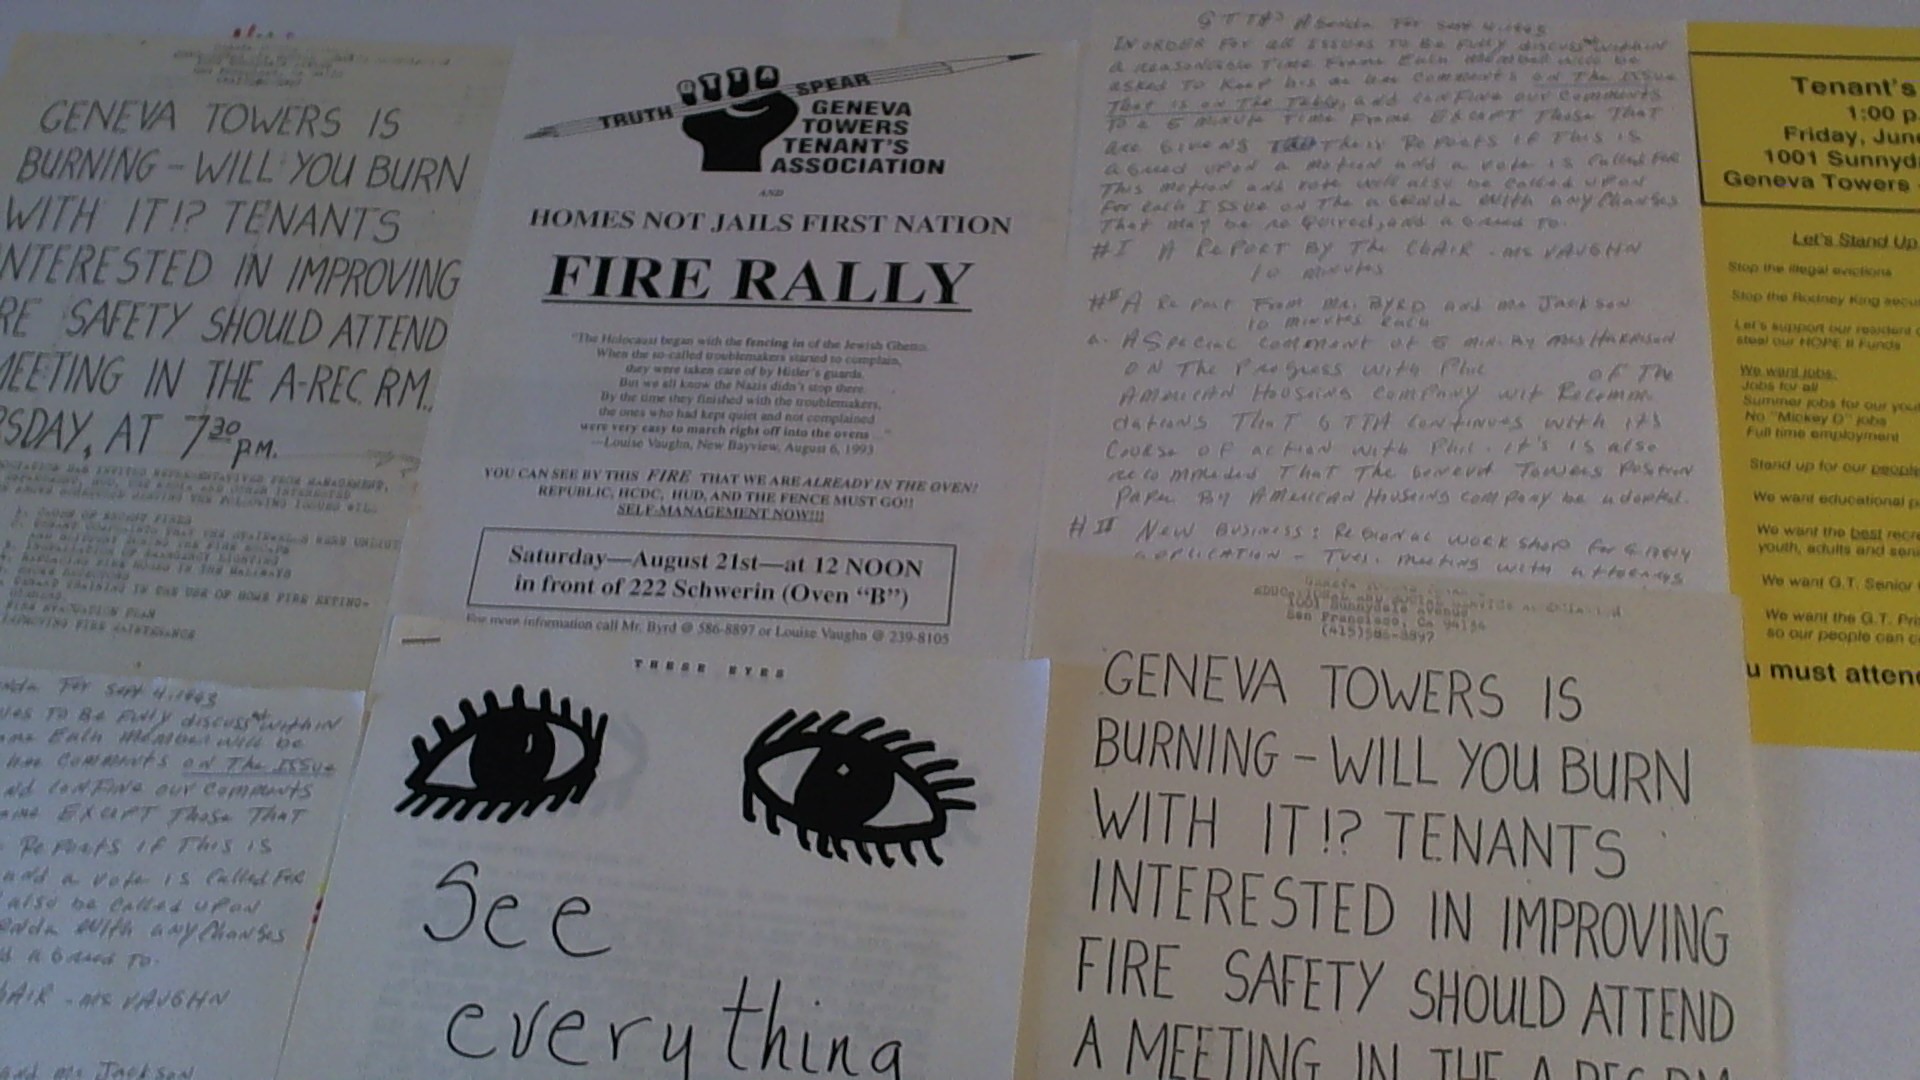 GENEVA TOWERS IS
BURNING – WILL YOU BURN
WITH IT!? TENANTS
NTERESTED IN IMPROVING
RE SAFETY SHOULD ATTEND
MEETING IN THE A-REC. RM.,
RSDAY, AT 7 30 P.M.
TRUTH SPEAR
GTTA
GENEVA
TOWERS
TENANT'S
ASSOCIATION
AND
HOMES NOT JAILS FIRST NATION
FIRE RALLY
"The Holocaust began with the fencing in of the Jewish Ghetto.
When the so-called troublemakers started to complain,
they were taken care of by Hitler's guards.
But we all know the Nazis didn't stop there.
By the time they finished with the troublemakers,
the ones who had kept quiet and not complained
were very easy to march right off into the ovens..."
—Louise Vaughn, New Bayview, August 6, 1993
YOU CAN SEE BY THIS FIRE THAT WE ARE ALREADY IN THE OVEN!
REPUBLIC, HCDC, HUD, AND THE FENCE MUST GO!!
SELF-MANAGEMENT NOW!!!
Saturday—August 21st—at 12 NOON
in front of 222 Schwerin (Oven "B")
For more information call Mr. Byrd @ 586-8897 or Louise Vaughn @ 239-8105
GTTA's Agenda For Sept 4, 1993
IN ORDER FOR all ISSUES To Be Fully discussed within
a reasonable Time Frame Each Member will be
asked To Keep his or her comments on The ISSue
That is on The Table, and confine our comments
To a 5 minute Time Frame EXCEPT Those That
are Giving Their Reports if This is
agreed upon a motion and a vote is called FOR
This motion and vote will also be called upon
For each ISSue on The agenda with any Changes
That may be required, and agreed to.
#I A RePORT BY The ChAIR - ms VAUGHN
10 minutes
#II A Report From Mr. BYRD and ms Jackson
10 minutes each
a. A Special comment of 5 min. By Mrs Harrison
ON The Progress with Phil of The
AMERICAN Housing Company with Recommen
dations That GTTA continues with its
course of action with Phil. it's is also
recommended That The Geneva Towers Position
Paper By American Housing company be adopted.
#II New Business: Regional workshop for
application - Tues. meeting with attorneys
Tenant's
1:00 p.
Friday, June
1001 Sunnyd
Geneva Towers
Let's Stand Up
Stop the illegal evictions
Stop the Rodney King secu
Let's support our resident
steal our HOPE II Funds
We want jobs:
Jobs for all
Summer jobs for our you
No "Mickey D" jobs
Full time employment
Stand up for our people
We want educational p
We want the best recre
youth, adults and seni
We want G.T. Senior
We want the G.T. Pri
so our people can c
u must atten
nda For Sept 4, 1993
ues To Be Fully discussed within
ame Each Member will be
her comments on The ISSue
nd confine our comments
ame EXCEPT Those That
Reports if This is
and a vote is called FOR
also be called upon
enda with any Changes
d agreed to.
hAIR - ms VAUGHN
and ms Jackson
THESE EYES
See
everything
1001 Sunnydale Avenue
San Francisco, Ca 94134
(415)586-8897
GENEVA TOWERS IS
BURNING – WILL YOU BURN
WITH IT!? TENANTS
INTERESTED IN IMPROVING
FIRE SAFETY SHOULD ATTEND
A MEETING IN THE A-REC. RM.